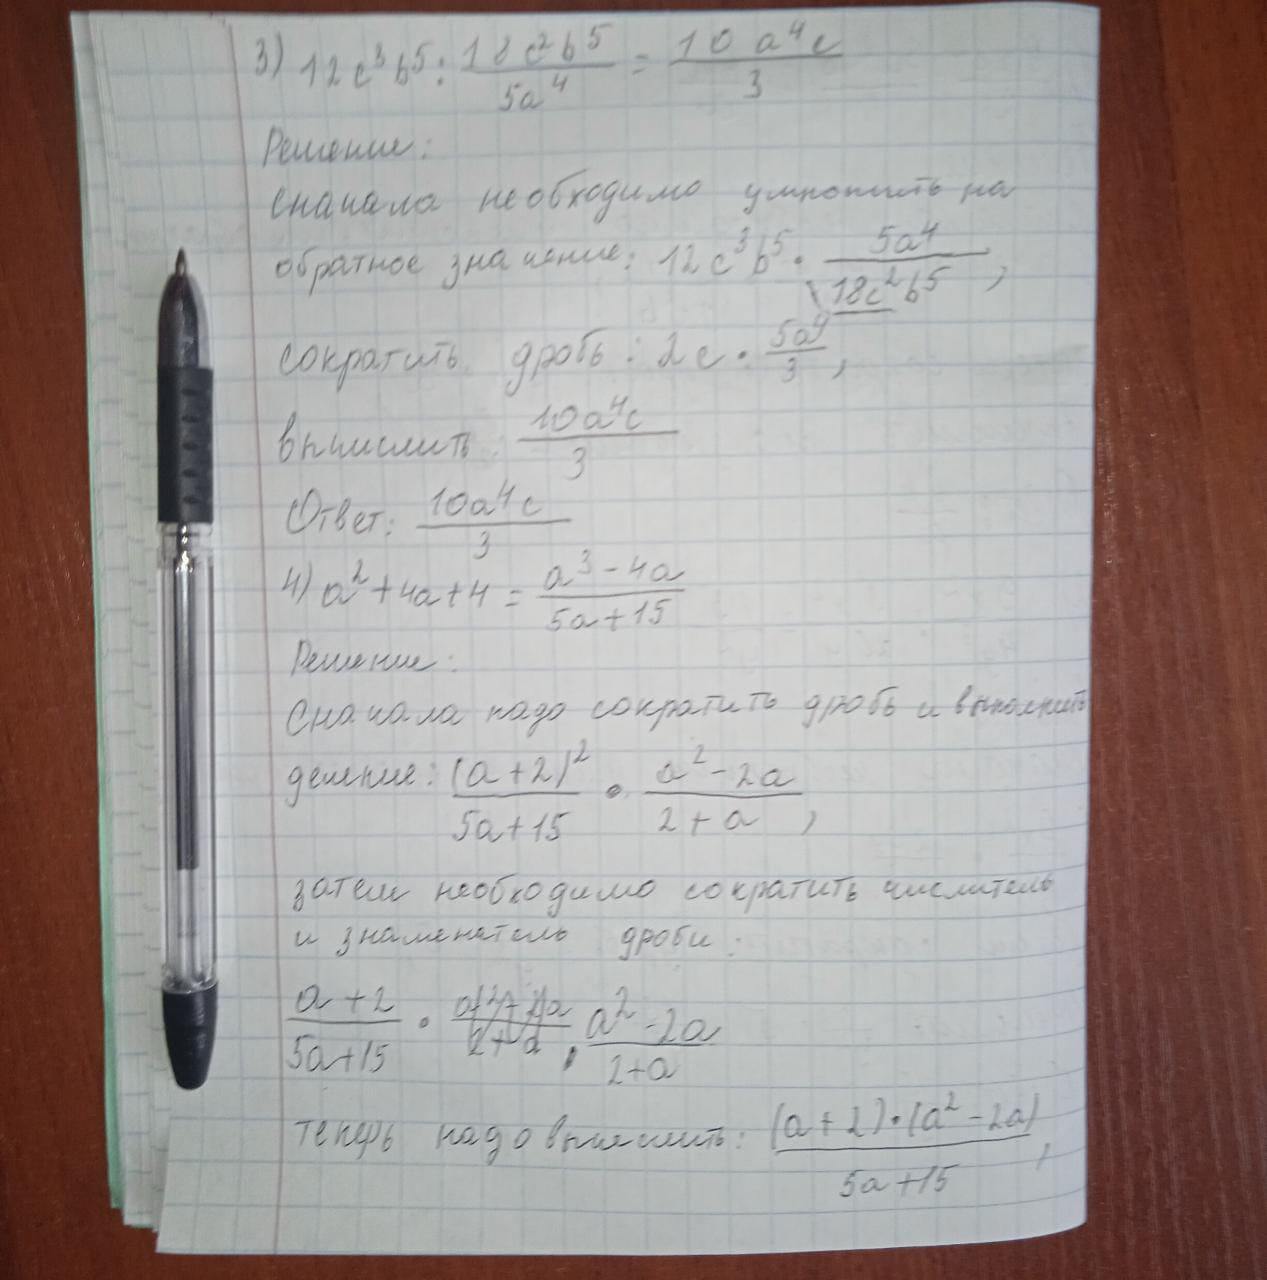 3) 12c³b⁵ : 18c²b⁵/5a⁴ = 10a⁴c/3
Решение:
сначала необходимо умножить на
обратное значение: 12c³b⁵ · 5a⁴/18c²b⁵,
сократить дробь: 2c · 5a⁴/3,
вычислить: 10a⁴c/3
Ответ: 10a⁴c/3
4) a²+4a+4 = a³-4a/5a+15
Решение:
Сначала надо сократить дробь и выполнить
деление: (a+2)²/5a+15 · a²-2a/2+a,
затем необходимо сократить числитель
и знаменатель дроби:
a+2/5a+15 · a²-2a/2+a
теперь надо вычислить: (a+2)·(a²-2a)/5a+15,